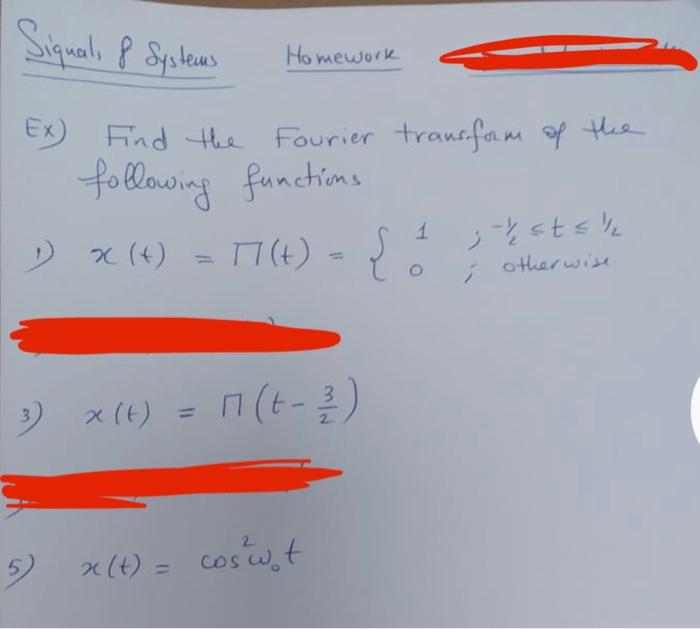 Signals & Systems Homework
Ex) Find the Fourier transform of the
following functions
1) x(t) = Π(t) = { 1 ; -1/2 ≤ t ≤ 1/2
0 ; otherwise
3) x(t) = Π(t - 3/2)
5) x(t) = cos²ω₀t